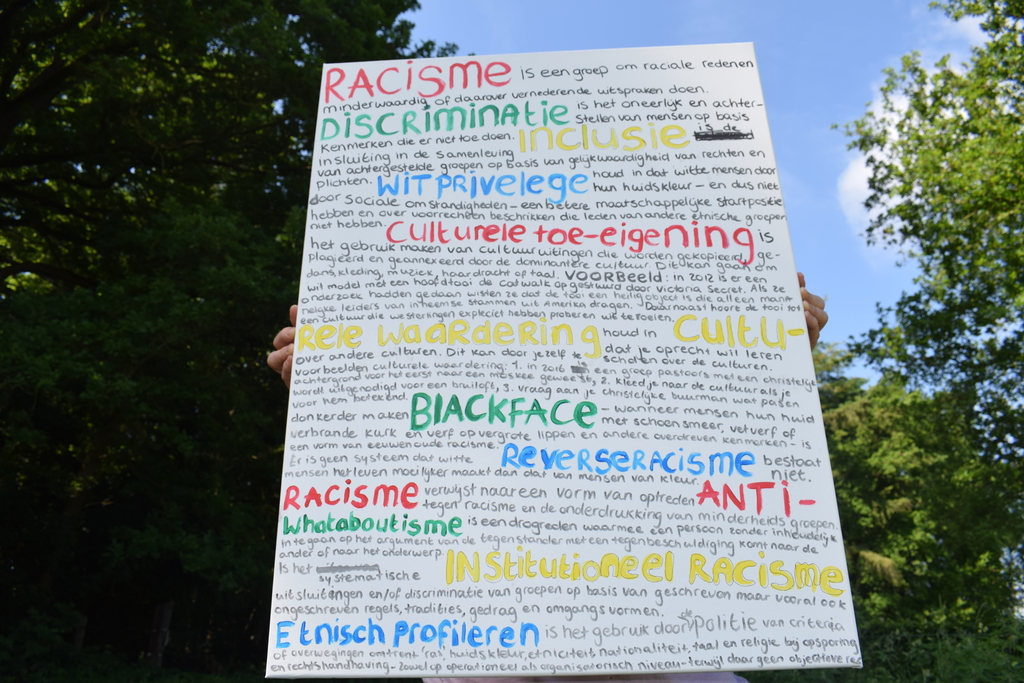 RACISME is een groep om raciale redenen
minderwaardig of daarover vernederende uitspraken doen.
DISCRIMINATIE is het oneerlijk en achter-
stellen van mensen op basis
kenmerken die er niet toe doen. INCLUSIE is de
insluiting in de samenleving
van achtergestelde groepen op basis van gelijkwaardigheid van rechten en
plichten. WIT PRIVELEGE houd in dat witte mensen door
hun huidskleur - en dus niet
door sociale omstandigheden - een betere maatschappelijke startpositie
hebben en over voorrechten beschrikken die leden van andere etnische groepen
niet hebben. Culturele toe-eigening is
het gebruik maken van cultuuruitingen die worden gekopieerd, ge-
plagieerd en geannexeerd door de dominantere cultuur. Dit kan gaan om
dans, kleding, muziek, haardracht of taal. VOORBEELD: in 2012 is er een
wit model met een hoofdtooi de catwalk op gestuurd door Victoria Secret. Als ze
onderzoek hadden gedaan wisten ze dat de tooi een heilig object is die alleen mann-
elijke leiders van inheemse stammen uit Amerika dragen. Daarnaast hoort de tooi tot
een cultuur die westerlingen expliciet hebben proberen uit te roeien.
Rele waardering houd in CULTU-
dat je oprecht wil leren
over andere culturen. Dit kan door jezelf te scholen over de culturen.
voorbeelden culturele waardering: 1. in 2016 een groep pastoors met een christelijke
achtergrond voor het eerst naar een moskee geweest, 2. kleed je naar de cultuur als je
wordt uitgenodigd voor een bruiloft, 3. vraag aan je christelijke buurman wat pasen
voor hem betekend. BlACKFACE - wanneer mensen hun huid
donkerder maken met schoensmeer, vetverf of
verbrande kurk en verf op vergrote lippen en andere overdreven kenmerken - is
een vorm van eeuwenoude racisme.
Er is geen systeem dat witte REVERSERACISME bestaat
niet.
mensen het leven moeilijker maakt dan dat van mensen van kleur.
RACISME verwijst naar een vorm van optreden ANTI-
tegen racisme en de onderdrukking van minderheids groepen.
Whataboutisme is een drogreden waarmee een persoon zonder inhoudelijk
in te gaan op het argument van de tegenstander met een tegenbeschuldiging komt naar de
ander of naar het onderwerp. INStitutioneel RACISME
Is het systematische
uitsluitingen en/of discriminatie van groepen op basis van geschreven maar vooral ook
ongeschreven regels, tradities, gedrag en omgangs vormen.
Etnisch Profileren is het gebruik door de politie van criteria
of overwegingen omtrent 'ras', huidskleur, etniciteit, nationaliteit, taal en religie bij opsporing
en rechtshandhaving - zowel op operationeel als organisatorisch niveau - terwijl daar geen objectieve rec